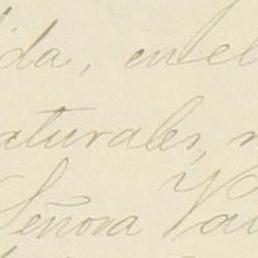 ida, en el
naturales, n
Señora Va